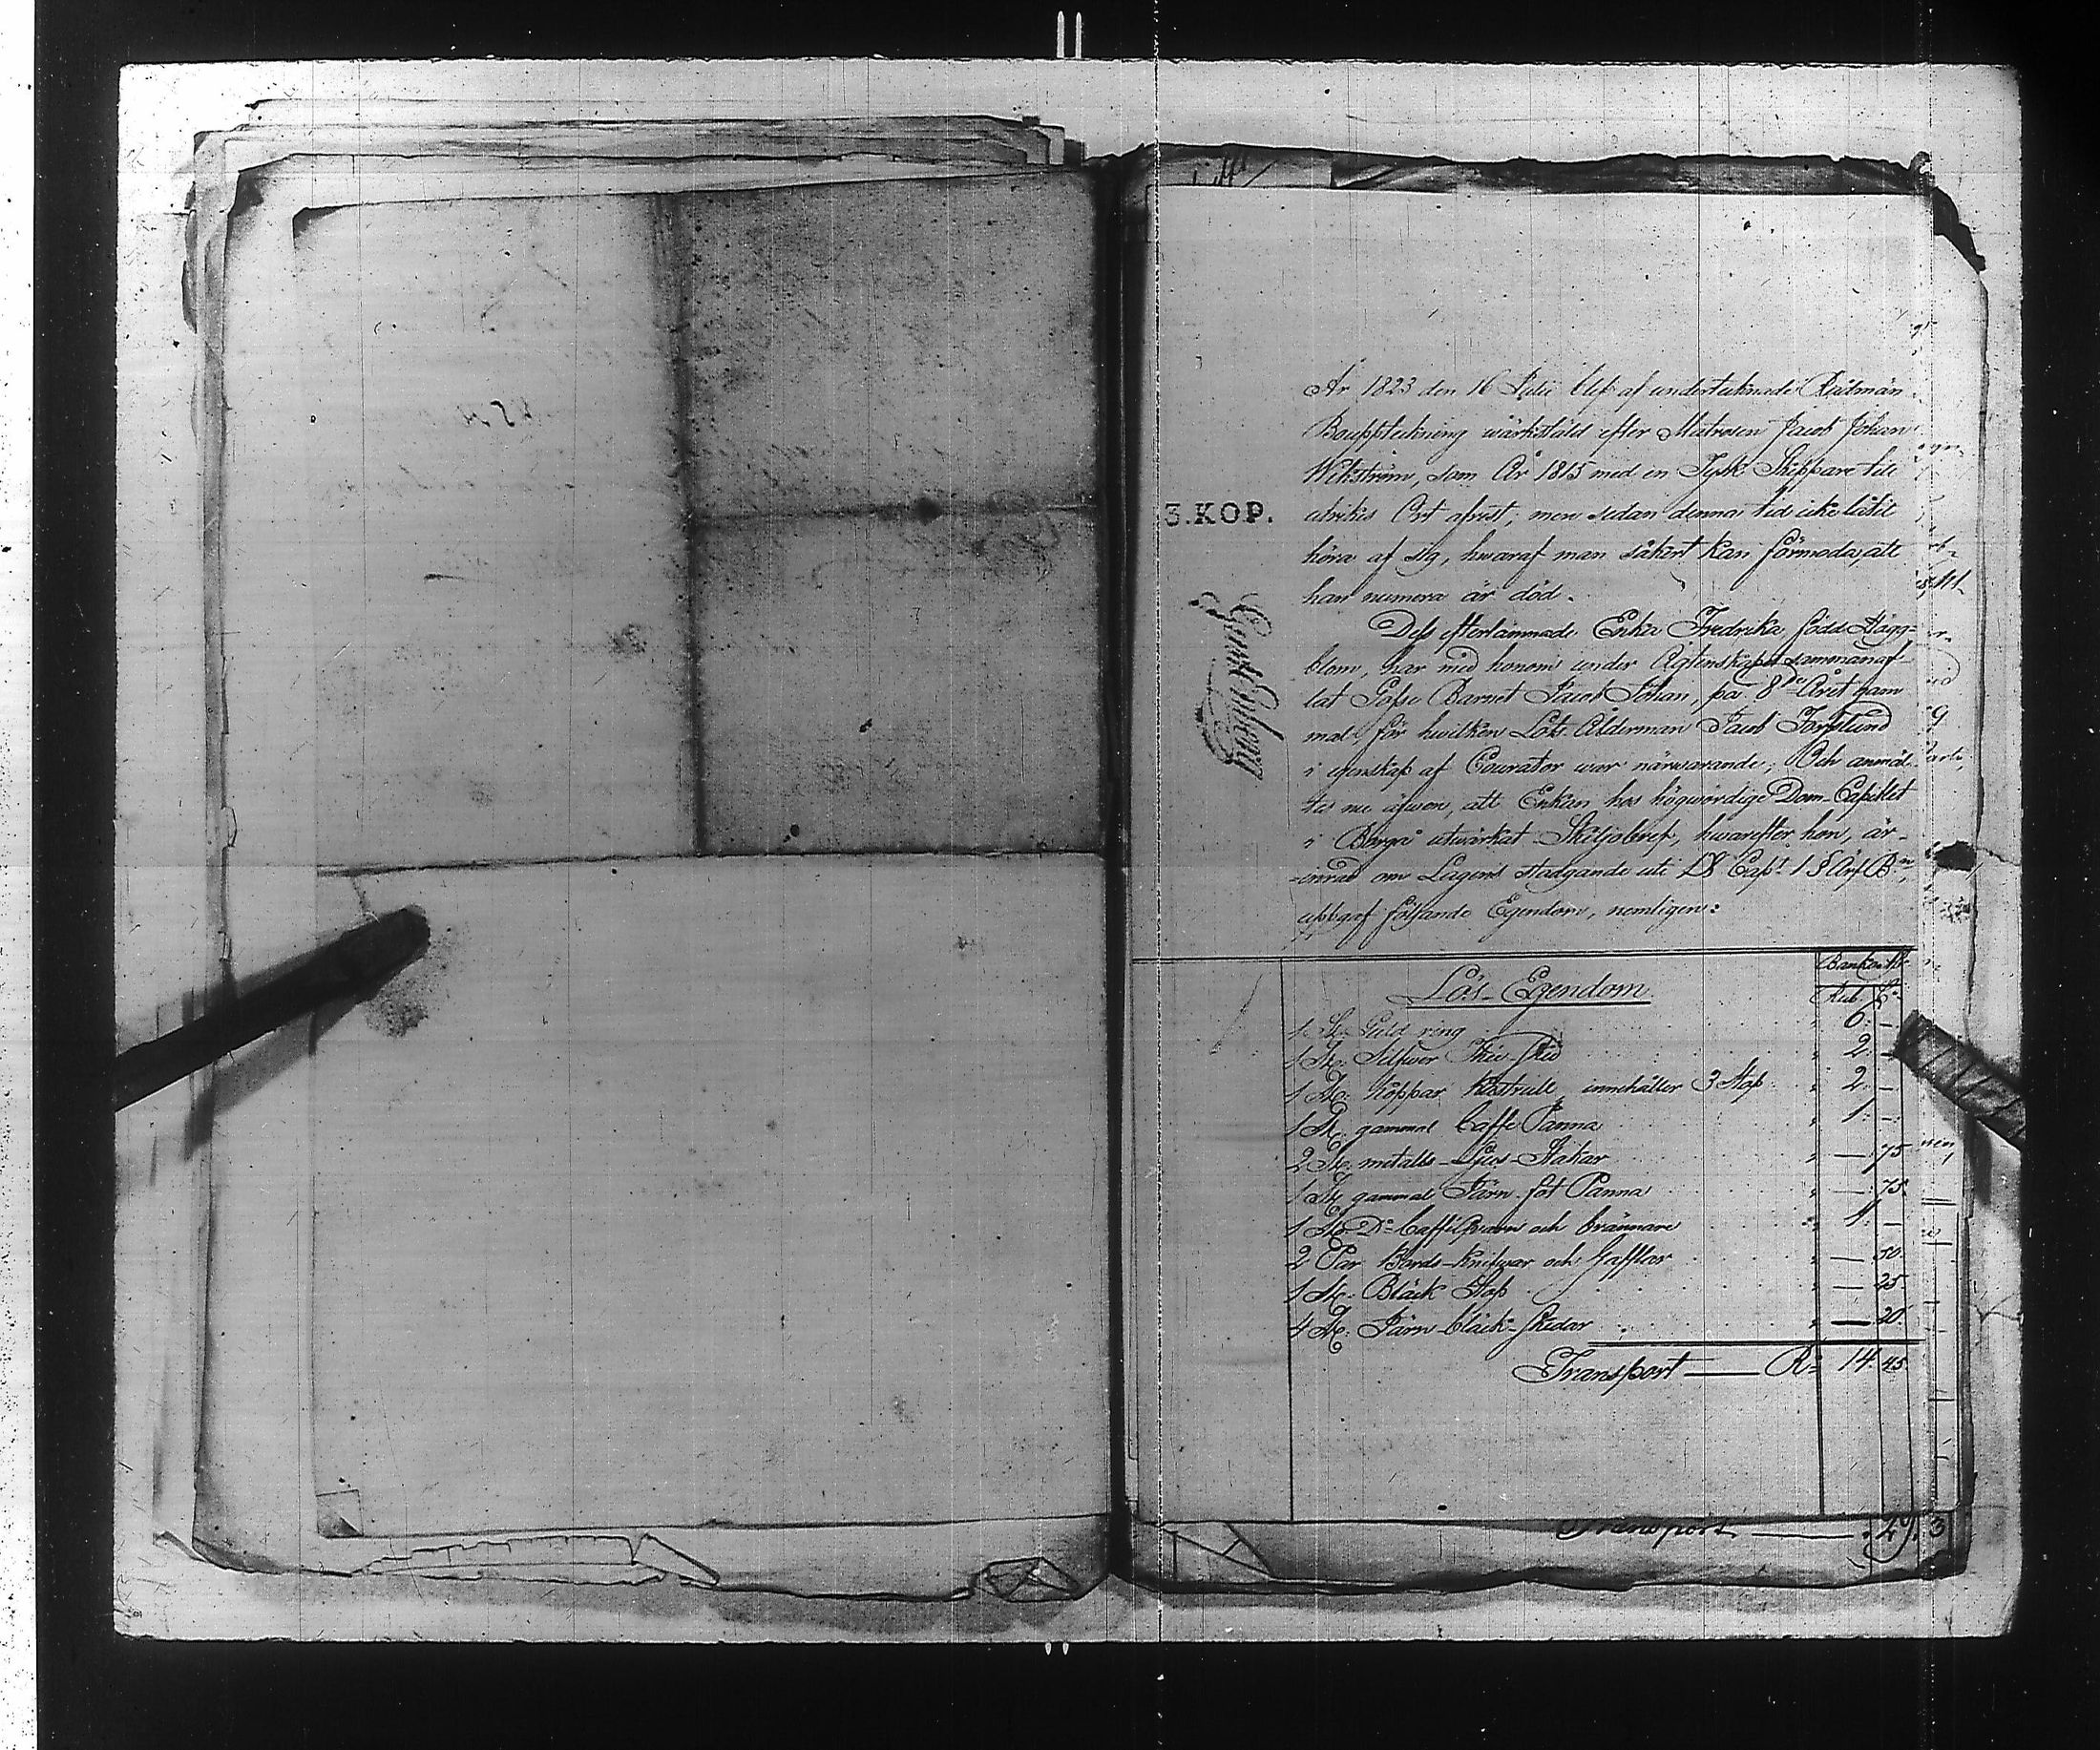 År 1823 den 16 Julii blef af undertecknade Rådmän
Bouppteckning wärkstäld efter Matrosen Jacob Johan
Wikström, som År 1815 med en Tysk Skeppare till
utrikes Ort afrest, men sedan denna tid icke låtit
3.KOP.
höra af sig, hwaraf man säkert kan förmoda, att
han numera är död.
Dess efterlämnade Enka Fredrika född Hägg-
blom, har med honom under Ägtenskapet sammanaf-
lat Gosse Barnet Jacob Johan, på 8de Året gam
mal, för hwilken Lots Ålderman Jacob Forslund
i egenskap af Courator war närwarande; Och anmäl-
tes nu äfwen, att Enkan hos högwördige Dom-Capitlet
i Borgå utwärkat Skiljobref, hwarefter hon, är-
inrad om Lagens stadgande uti 18 Capt. 1 § Ärf. B:n,
uppgaf följande Egendom, nemligen:
Lös-Egendom
Banko
Rub.
1 St. Guld ring 6. —
1 St. Silfwer Thée sked 2. —
1 St. Koppar Kastrull, innehåller 3 Stop 2. —
1 St. gammal Caffe Panna 1. —
2 St. metalls-Ljus-Stakar — 75
1 St. gammal Järn fot Panna — 75.
1 St. Do Caffe Qvarn och brännare 1. —
2 Par Bords-Knifwar och Gafflar — 50.
1 St. Bläck Stop — 25
4 St. Järn-bläck-Skedar — 20
Transport — R: 14. 45
Transport — 29. 3